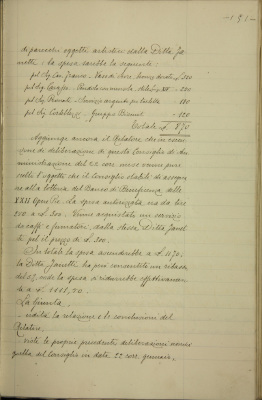 - 151 -
di parecchi oggetti artistici dalla Ditta Ja-
netti: la spesa sarebbe la seguente:
pel Sig. Cav. Franco - Vaso di Sèvres, bronzo dorato £ 300
pel Sig. - 
pel Sig. - Bronzo argentato 180
pel Sig. - Gruppo Bisquit - 120
Totale £ 870
Aggiunge ancora il Relatore che in esecu-
zione di deliberazione di questo Consiglio di Am-
ministrazione del 22 corr. mese venne pure
scelto l'oggetto che il Consiglio stabilì di assegna-
re alla lotteria del Banco di Beneficenza delle
XXII Opere Pie. La spesa autorizzata era da lire
250 a £ 300. Venne acquistato un servizio
da caffè e fumatori, dalla stessa Ditta Janet-
ti pel prezzo di £ 300.
In totale la spesa ascenderebbe a £ 1170.
la Ditta Janetti ha però consentito un ribasso
del 5%, onde la spesa si ridurrebbe effettivamen-
te a £ 1111,50.
La Giunta
udita la relazione e le conclusioni del
Relatore,
viste le proprie precedenti deliberazioni nonchè
quella del Consiglio in data 22 corr. gennaio,